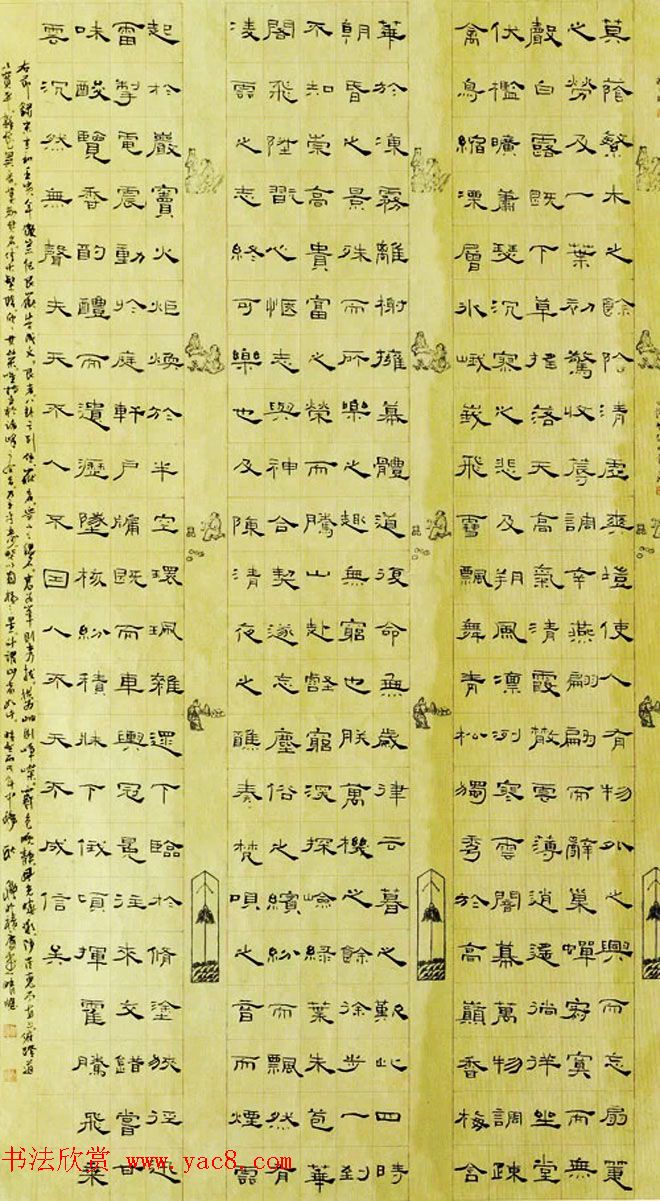 莫蔭繁木之餘陰清虛爽塏使人有物外之興而忘扇箑
之勞及一葉初驚收蓐調辛燕翩翩而辭巢蟬寂寞而無
聲白露既下草摧落天高氣清霞散雲薄逍遙徜徉坐堂
伏檻曠蕭瑟沉寥之悲及朔風凜冽寒雲闇幕萬物調疎
禽鳥縮凓層冰峨峩飛雪飄舞青松獨秀於高巔香梅含
華於凍霧離榭擁幕體道復命無歲律云暮之歎此四時
朝昏之景殊而所樂之趣無窮也朕萬機之餘徐步一到
不知崇高貴富之榮而騰山赴壑窮深探嶮綠葉朱苞華
閣飛陞翫心愜志與神合契遂忘塵俗之繽紛而飄然有
凌雲之志終可樂也及陳清夜之醮奏梵唄之音而煙霞
起於巖竇火炬煥於半空環珮雜還下臨於脩塗狹徑迅
雷掣電震動於庭軒戶牖既而車輿冠冕往來交錯嘗甘
味酸覽香酌醴而遺瀝墜核紛積牀下俄頃揮霍騰飛乘
雲沉然無聲夫天不人不因人不天不成信矣
书法欣赏 www.yac8.com